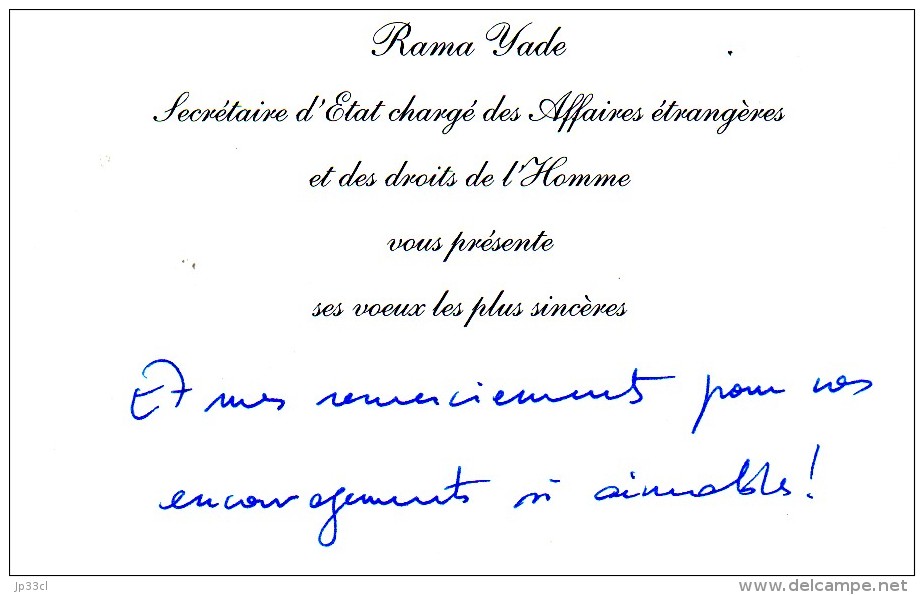 Rama Yade
Secrétaire d'Etat chargé des Affaires étrangères
et des droits de l'Homme
vous présente
ses voeux les plus sincères
Et mes remerciements pour vos
encouragements si aimables!
jp33cl
www.delcampe.net